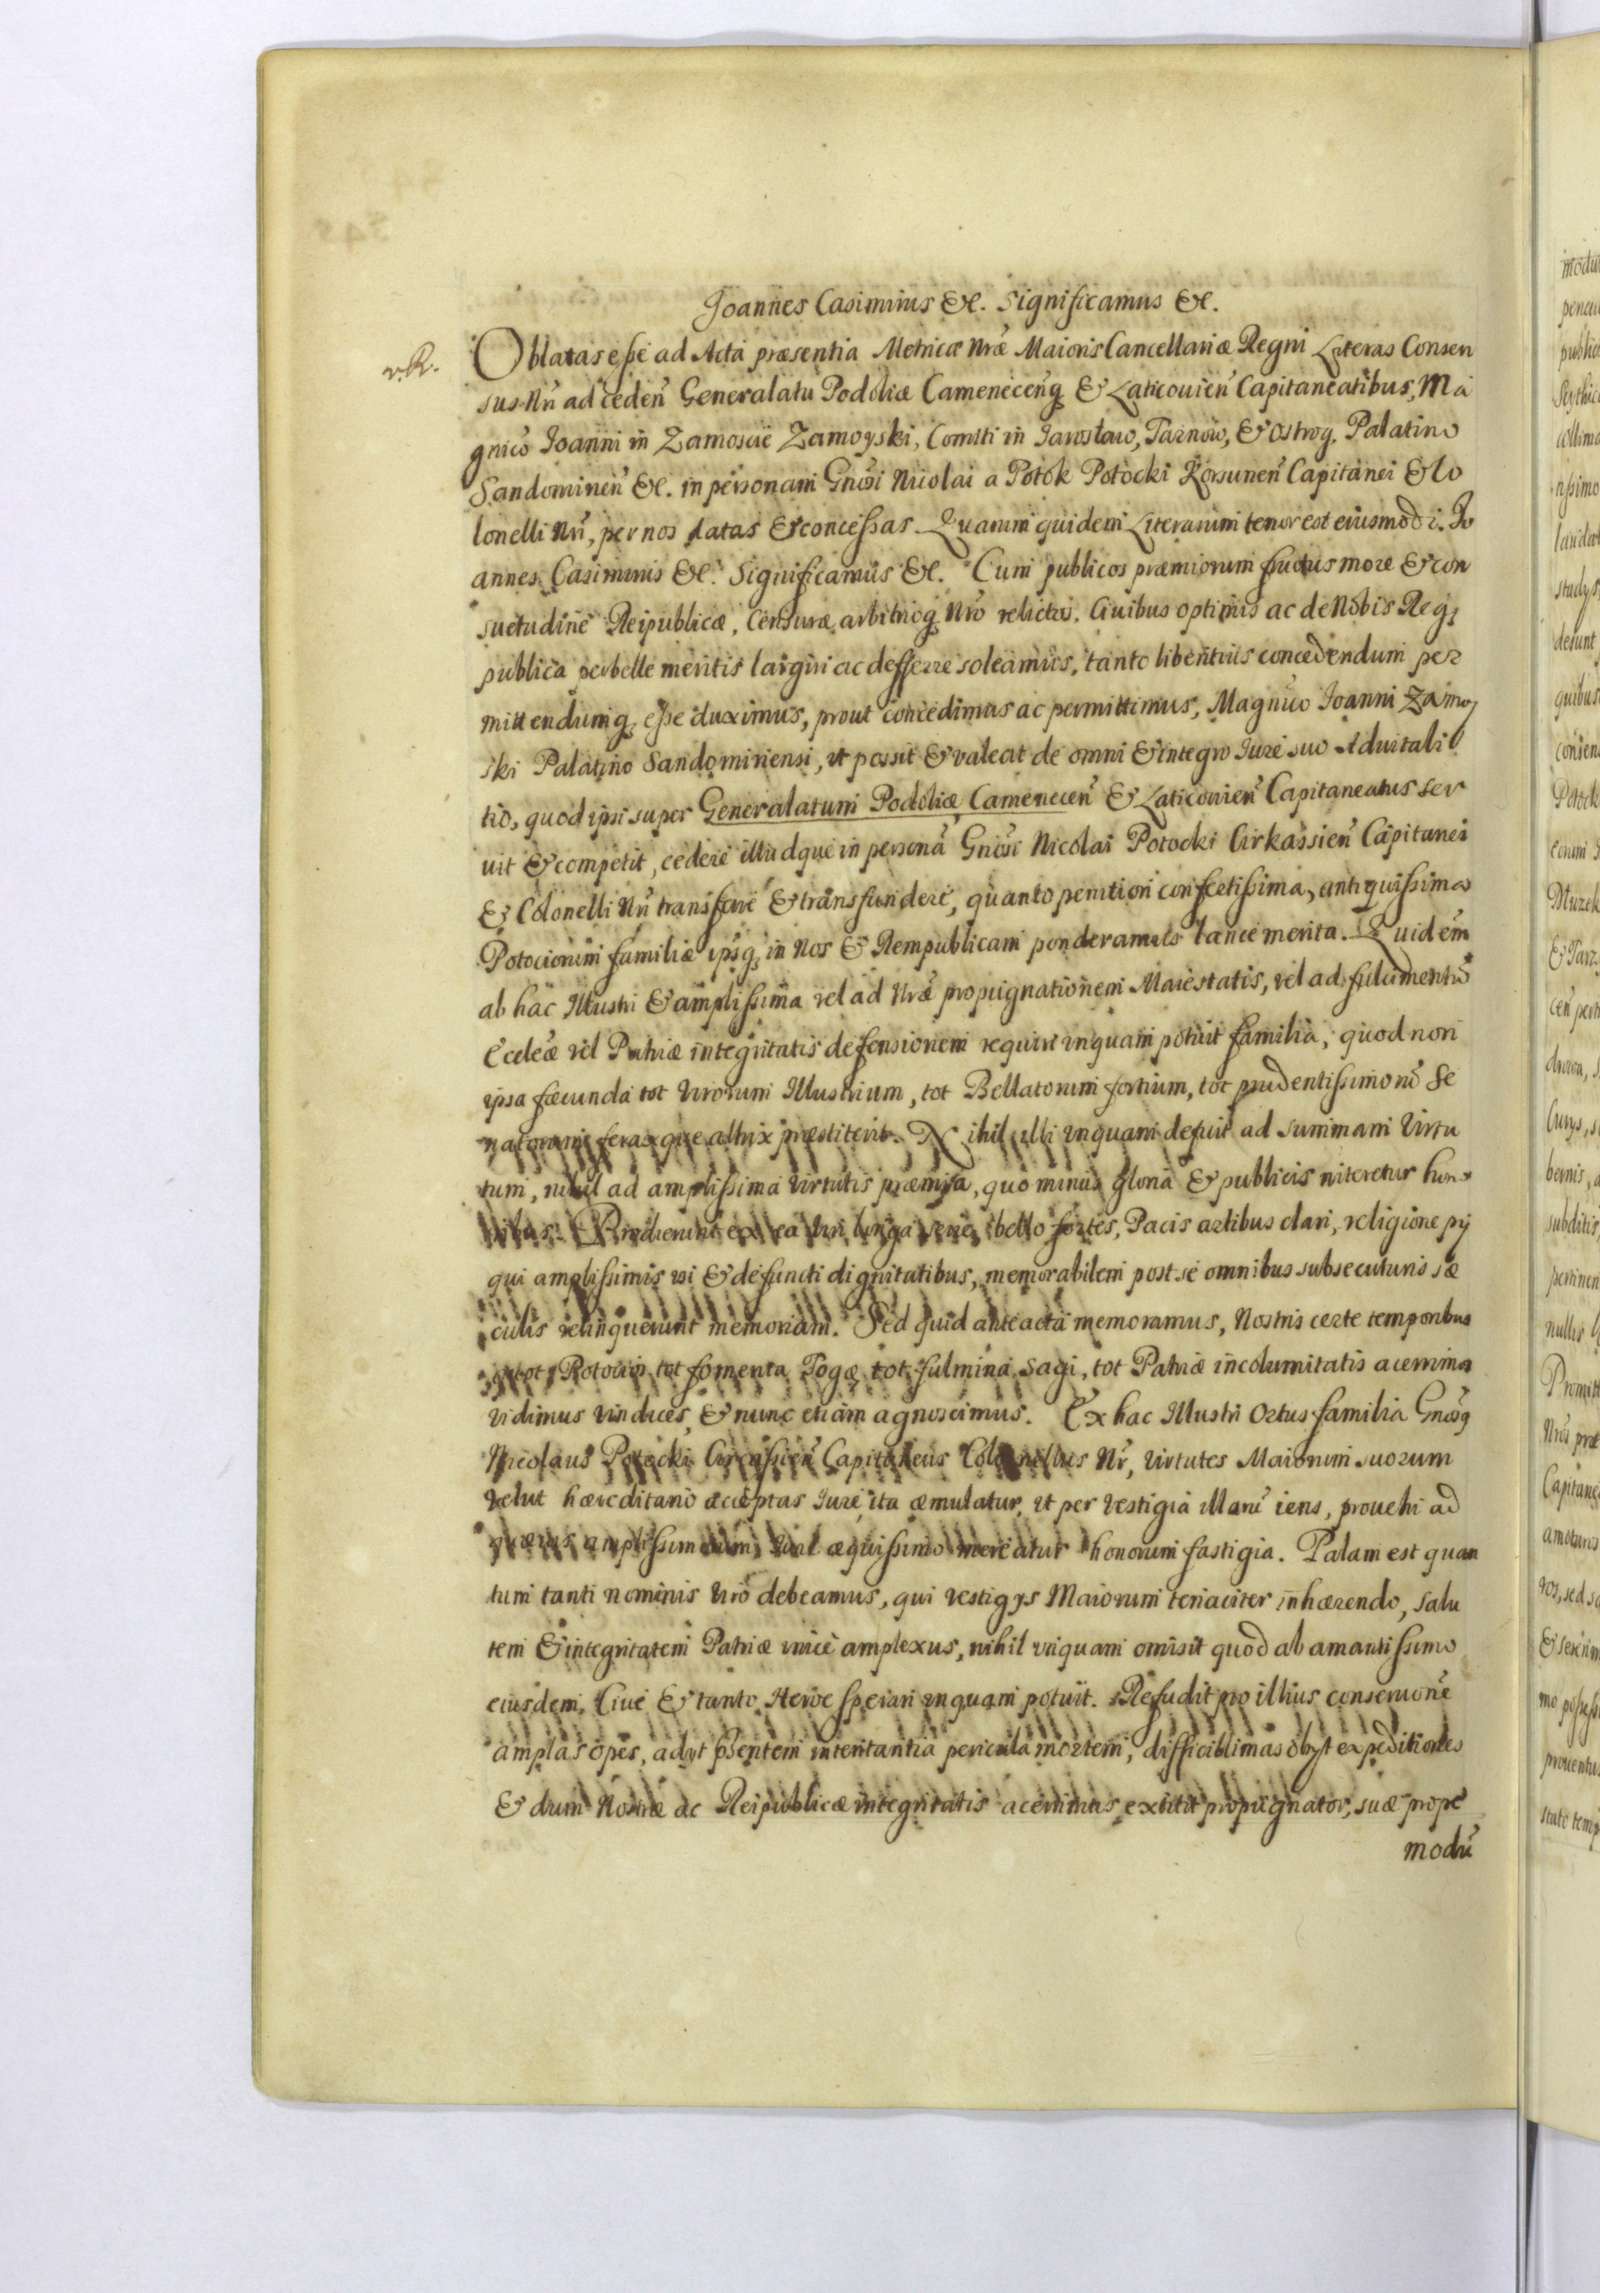 Joannes Casimirus &c. Significamus &c.
v.R.
Oblatas eße ad Acta præsentia Metricæ Nræ Maioris Cancellariæ Regni Literas Consen
sus Nri ad ceden Generalatu Podoliæ Cameneceng & Laticouien Capitaneatibus, Ma
gnico Joanni in Zamoscie Zamoyski, Comiti in Jaroslaw, Tarnow, & Ostrog, Palatino
Sandominen &c. in personam Gnosi Nicolai a Potok Potocki Korsunen Capitanei & Co
lonelli Nri, per nos datas & conceßas Quarum quidem Literarum tenor est eiusmodi. Jo
annes Casimirus &c. Significamus &c. Cum publicos præmiorum fructus more & con
suetudine Reipublicæ, Censuræ arbitrioq Nro relictos, Ciuibus optimis ac de Nobis Req
publica perbelle meritis largiri ac defferre soleamus, tanto libentius concedendum per
mittendumq eße duximus, prout concedimus ac permittimus, Magnico Joanni Zamoy
ski Palatino Sandomiriensi, ut possit & valeat de omni & integro Jure suo Aduitali
tio, quod ipsi super Generalatum Podoliæ Camenecen & Laticouien Capitaneatus ser
uit & competit, cedere illudque in personã Gnosi Nicolai Potocki Cirkassien Capitanei
& Colonelli Nri transferre & transfundere, quanto penitiori confertißima, antiquißima
Potociorum familiæ ipsq in Nos & Rempublicam ponderamus lance merita. Quid em
ab hac Illustri & amplißima vel ad Nræ propugnationem Maiestatis, vel ad fulcimentũ
Eccleæ vel Patriæ integritatis defensionem requiri unquam potuit familia, quod non
ipsa fæcunda tot Virorum Illustrium, tot Bellatorum fortium, tot prudentißimorũ Se
natorum feraxque altrix præstiterit. Nihil illi unquam defuit ad summam Virtu
tum, nihil ad amplißima Virtutis præmia, quo minus gloria & publicis niteretur hono
ribus. Prodierunt ex ea Viri longa serie, bello fortes, Pacis artibus clari, religione pij
qui amplißimis usi & defuncti dignitatibus, memorabilem post se omnibus subsecuturis sæ
culis relinquerunt memoriam. Sed quid anteacta memoramus, Nostris certe temporibus
tot Potocios tot fomenta Togæ tot fulmina Sagi, tot Patriæ incolumitatis acerrima
vidimus Vindices, & nunc etiam agnoscimus. Ex hac Illustri Ortus familia Gnosq
Nicolaus Potocki Circaßien Capitaneus Colonellus Nr, Virtutes Maiorum suorum
velut hæreditario acceptas Jure ita æmulatur, ut per Vestigia illarũ iens, prouehi ad
quæuis amplißimorum, vel æquißimo mereatur honorum fastigia. Palam est quan
tum tanti nominis Viro debeamus, qui vestigys Maiorum tenaciter inhærendo, salu
tem & integritatem Patriæ unice amplexus, nihil vnquam omisit quod ab amantißimo
eiusdem Ciue & tanto Heroe sperari unquam potuit. Refudit pro illius conseruone
amplas opes, adijt psentem intentantia pericula mortem, difficillimas obijt expeditiones
& dum Nostræ ac Reipublicæ integritatis acerrimus extitit propugnator, suæ prope
modũ